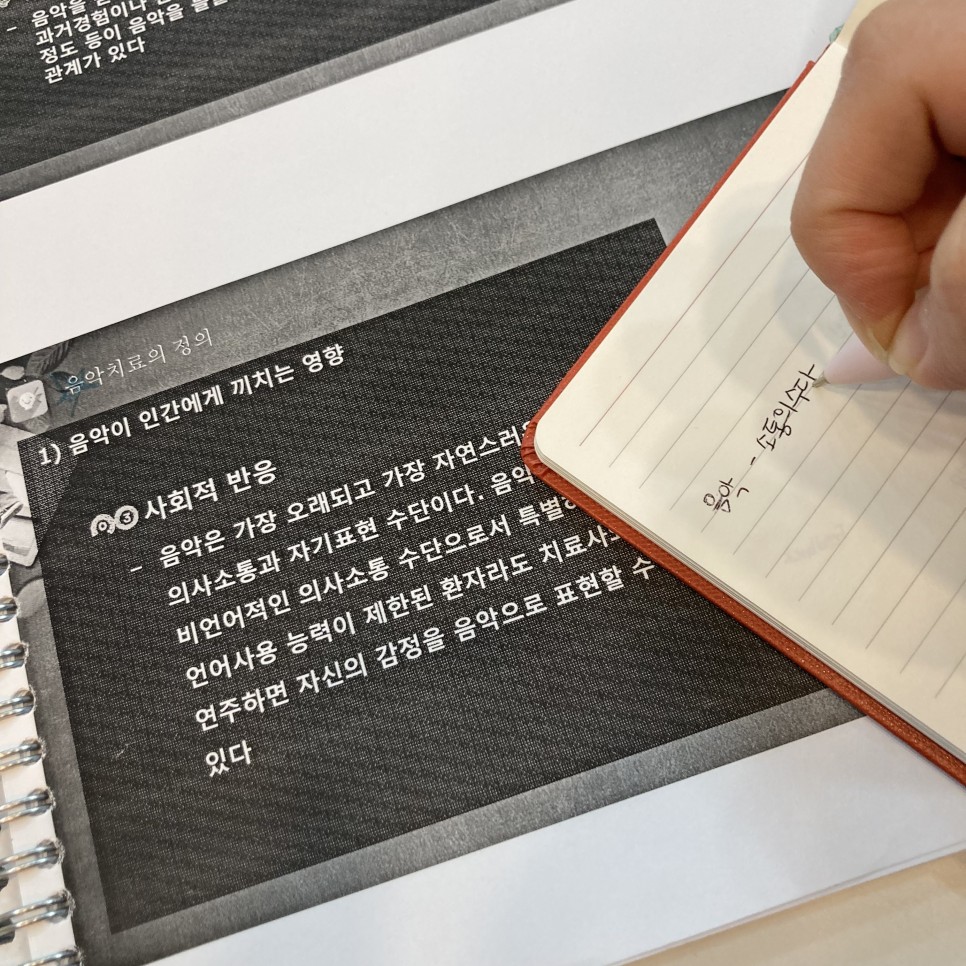 음악을
과거경험이나
정도 등이 음악을
관계가 있다
음악치료의 정의
1) 음악이 인간에게 끼치는 영향
03 사회적 반응
- 음악은 가장 오래되고 가장 자연스러운
의사소통과 자기표현 수단이다. 음악
비언어적인 의사소통 수단으로서
언어사용 능력이 제한된 환자라도
연주하면 자신의 감정을 음악으로 표현할 수
있다